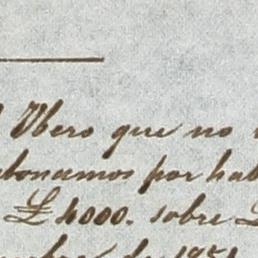 Vbero que no
abonamos por hab
£4000. sobre L
de 1851